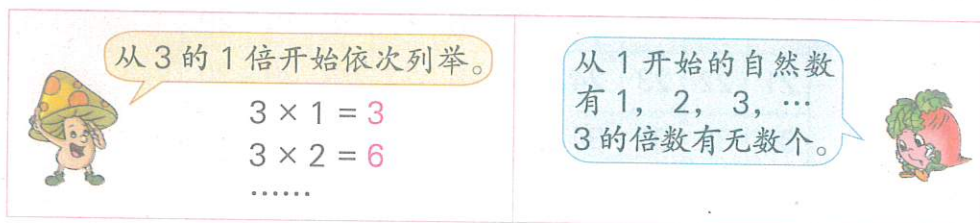 从3的1倍开始依次列举。
3 × 1 = 3
3 × 2 = 6
……
从1开始的自然数
有1，2，3，…
3的倍数有无数个。